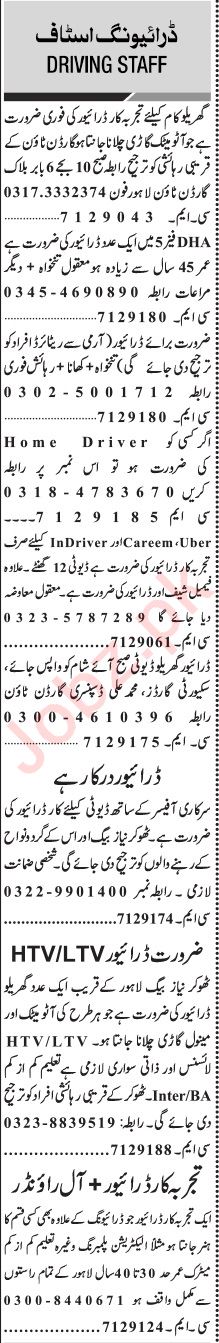 ڈرائیونگ اسٹاف
DRIVING STAFF
گھریلو کام کیلئے تجربہ کار ڈرائیور کی فوری ضرورت
ہے جو آٹو میٹک گاڑی چلانا جانتا ہو گارڈن ٹاؤن کے
قریبی رہائشی کو ترجیح رابطہ صبح 10 بجے 6 بابر بلاک
گارڈن ٹاؤن لاہور فون 0317.3332374
سی۔ایم۔ 7129043
DHA فیز 5 میں ایک عدد ڈرائیور کی ضرورت ہے
عمر 45 سال سے زیادہ ہو معقول تنخواہ + دیگر
مراعات رابطہ 0345-4690890
سی ایم۔ 7129180
ضرورت برائے ڈرائیور (آرمی سے ریٹائرڈ افراد کو
ترجیح دی جائے گی) تنخواہ + کھانا + رہائش فوری
رابطہ 0302-5001712
سی ایم۔ 7129180
اگر کسی کو Home Driver
کی ضرورت ہو تو اس نمبر پر رابطہ
کریں 0318-4783670
سی ایم 7129185
Uber،Careem اور InDriver کیلئے صرف
تجربہ کار ڈرائیور کی ضرورت ہے ڈیوٹی 12 گھنٹے۔علاوہ
فیمیل شیف اور ڈرائیور کی ضرورت ہے۔معقول معاوضہ
دیا جائے گا 0323-5787289
سی ایم۔ 7129061
ڈرائیور گھریلو ڈیوٹی صبح آئے شام کو واپس جائے،
سکیورٹی گارڈز، محمد علی ڈسپنسری گارڈن ٹاؤن
رابطہ 0300-4610396
سی۔ایم۔ 7129175
ڈرائیور درکار ہے
سرکاری آفیسر کے ساتھ ڈیوٹی کیلئے کار ڈرائیور کی
ضرورت ہے۔ٹھوکر نیاز بیگ اور اس کے گردونواح
کے رہنے والوں کو ترجیح دی جائے گی۔شخصی ضمانت
لازمی۔رابطہ نمبر 0322-9901400
سی ایم۔ 7129174
ضرورت ڈرائیور HTV/LTV
ٹھوکر نیاز بیگ لاہور کے قریب ایک عدد گھریلو
ڈرائیور کی ضرورت ہے جو ہر طرح کی آٹو میٹک اور
مینول گاڑی چلانا جانتا ہو۔ HTV/LTV
لائسنس اور ذاتی سواری لازمی ہے تعلیم کم از کم
Inter/BA۔ٹھوکر کے قریبی رہائشی افراد کو ترجیح
دی جائے گی۔رابطہ: 0323-8839519
سی ایم۔ 7129188
تجربہ کار ڈرائیور + آل راؤنڈر
ایک تجربہ کار ڈرائیور جو ڈرائیونگ کے علاوہ بھی کسی قسم کا
ہنر جانتا ہو مثلاً الیکٹریشن پلمبرنگ وغیرہ تعلیم کم از کم
میٹرک عمر حد 30 تا 40 سال لاہور کے تمام راستوں
سے مکمل واقف ہو 0300-8440671
سی۔ایم۔ 7129124
Jobz.pk